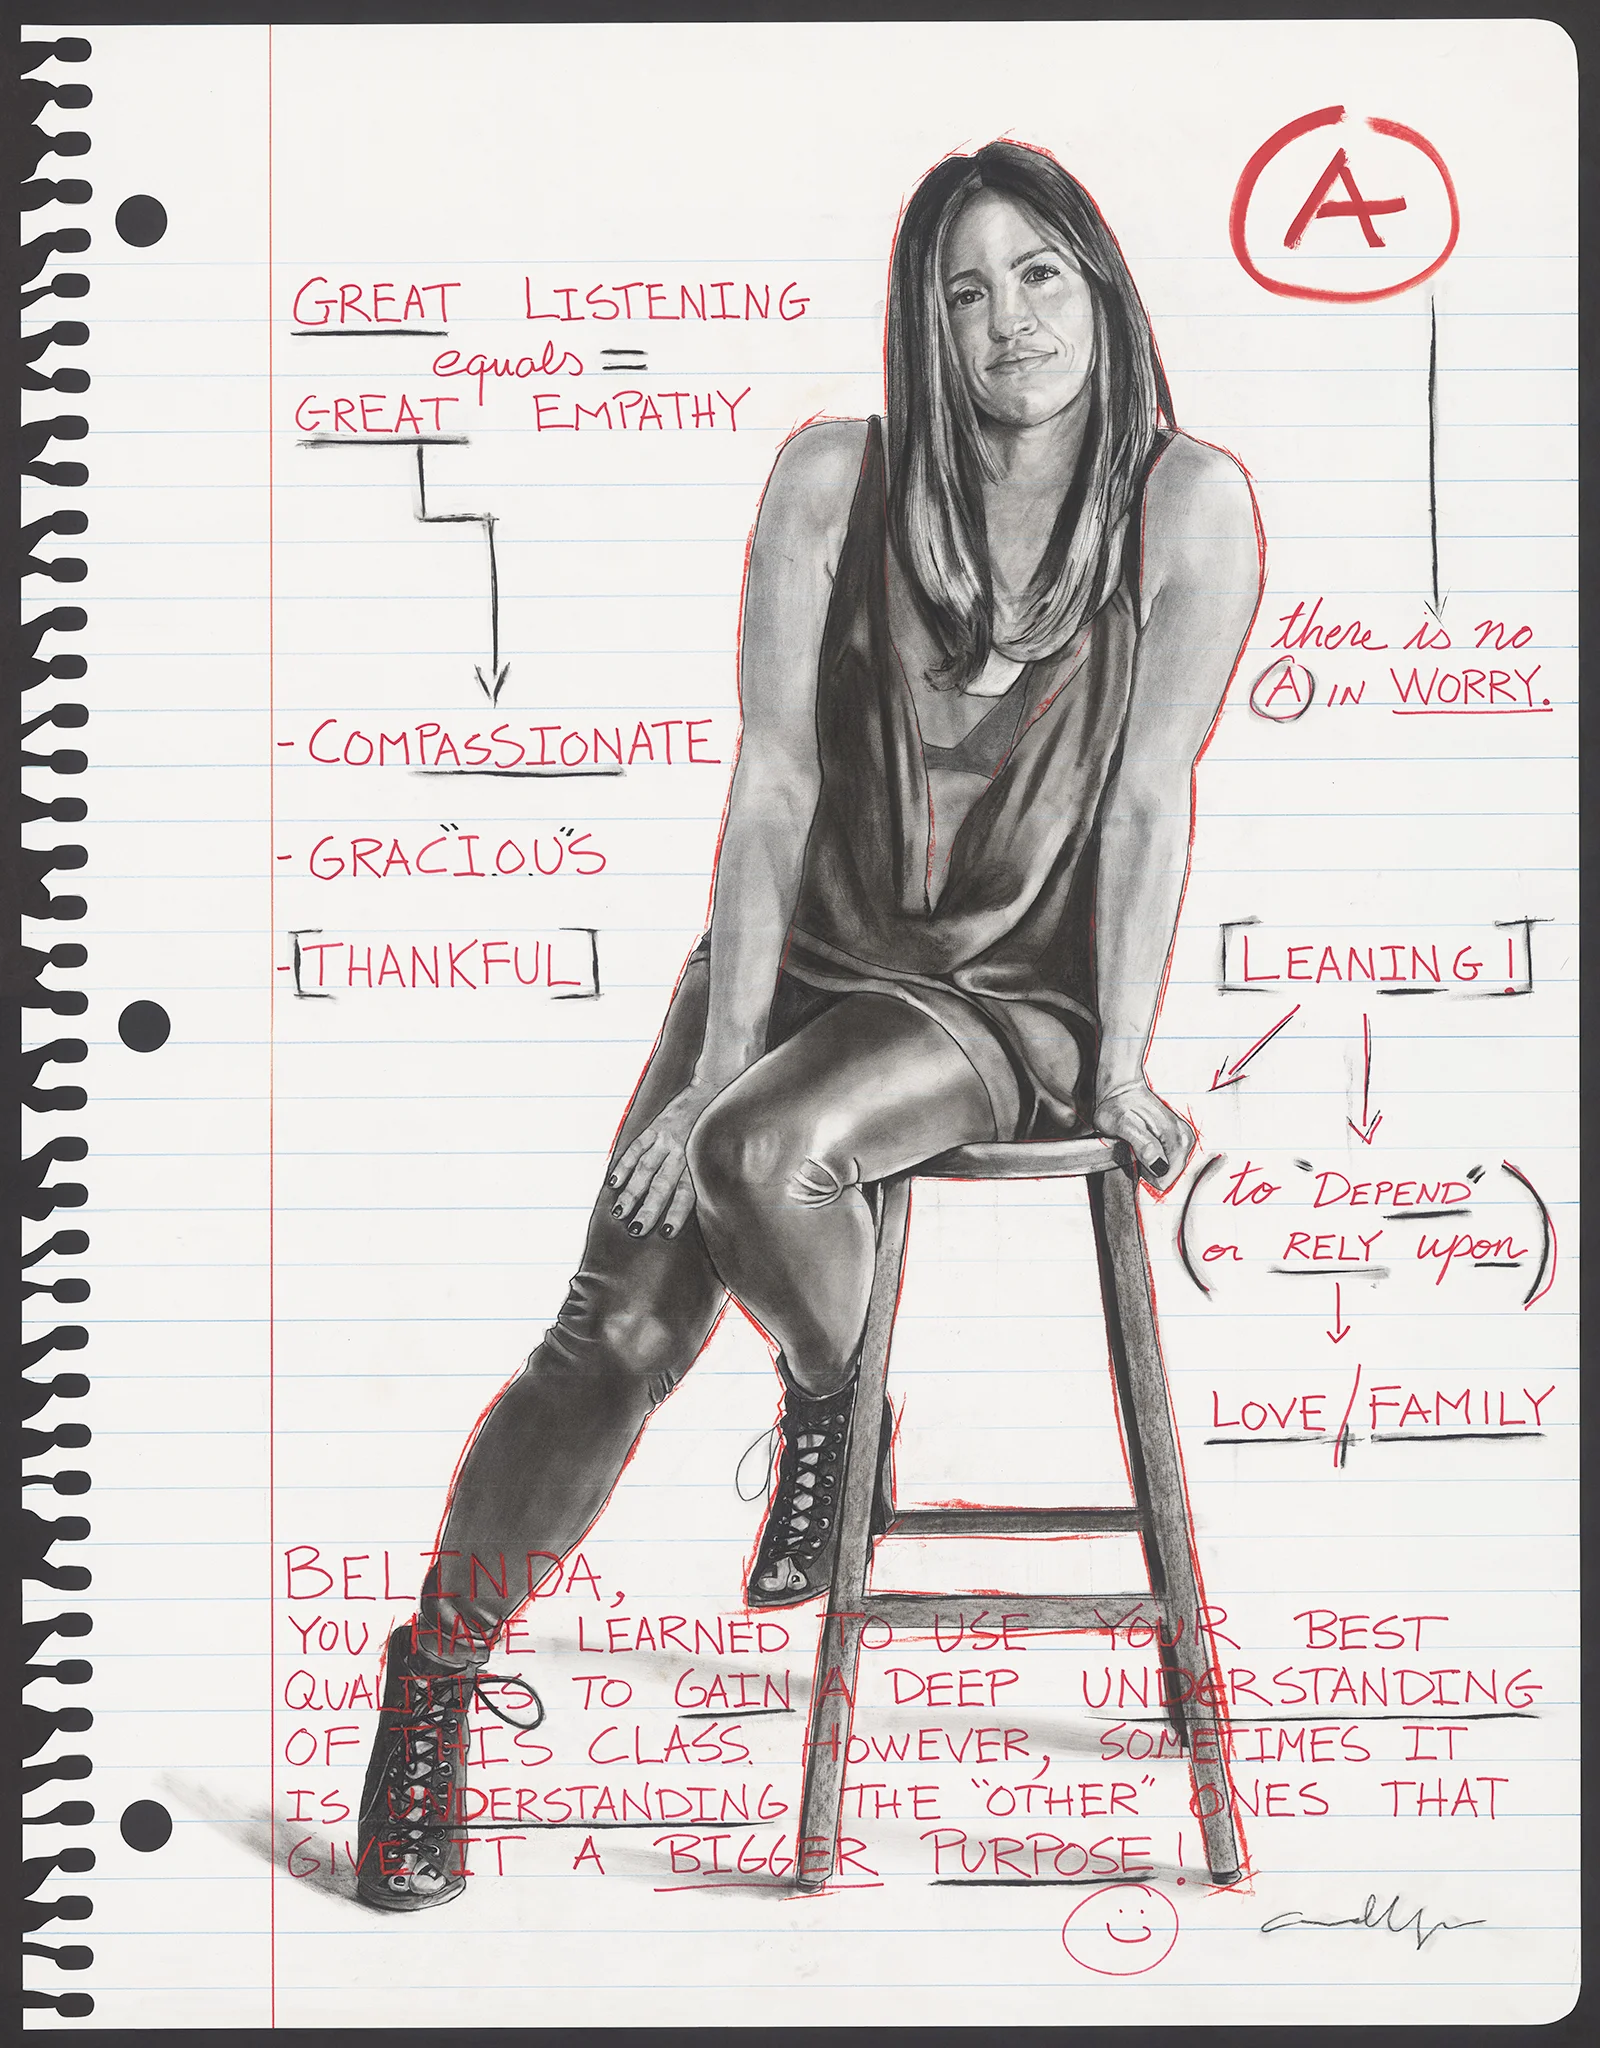 A
GREAT LISTENING
equals =
GREAT EMPATHY
there is no
A IN WORRY.
- COMPASSIONATE
- GRAC"I.O.U"S
- [THANKFUL]
[LEANING!]
(to "DEPEND"
or RELY upon)
LOVE/FAMILY
BELINDA,
YOU HAVE LEARNED TO USE YOUR BEST
QUALITIES TO GAIN A DEEP UNDERSTANDING
OF THIS CLASS. HOWEVER, SOMETIMES IT
IS UNDERSTANDING THE "OTHER" ONES THAT
GIVE IT A BIGGER PURPOSE!